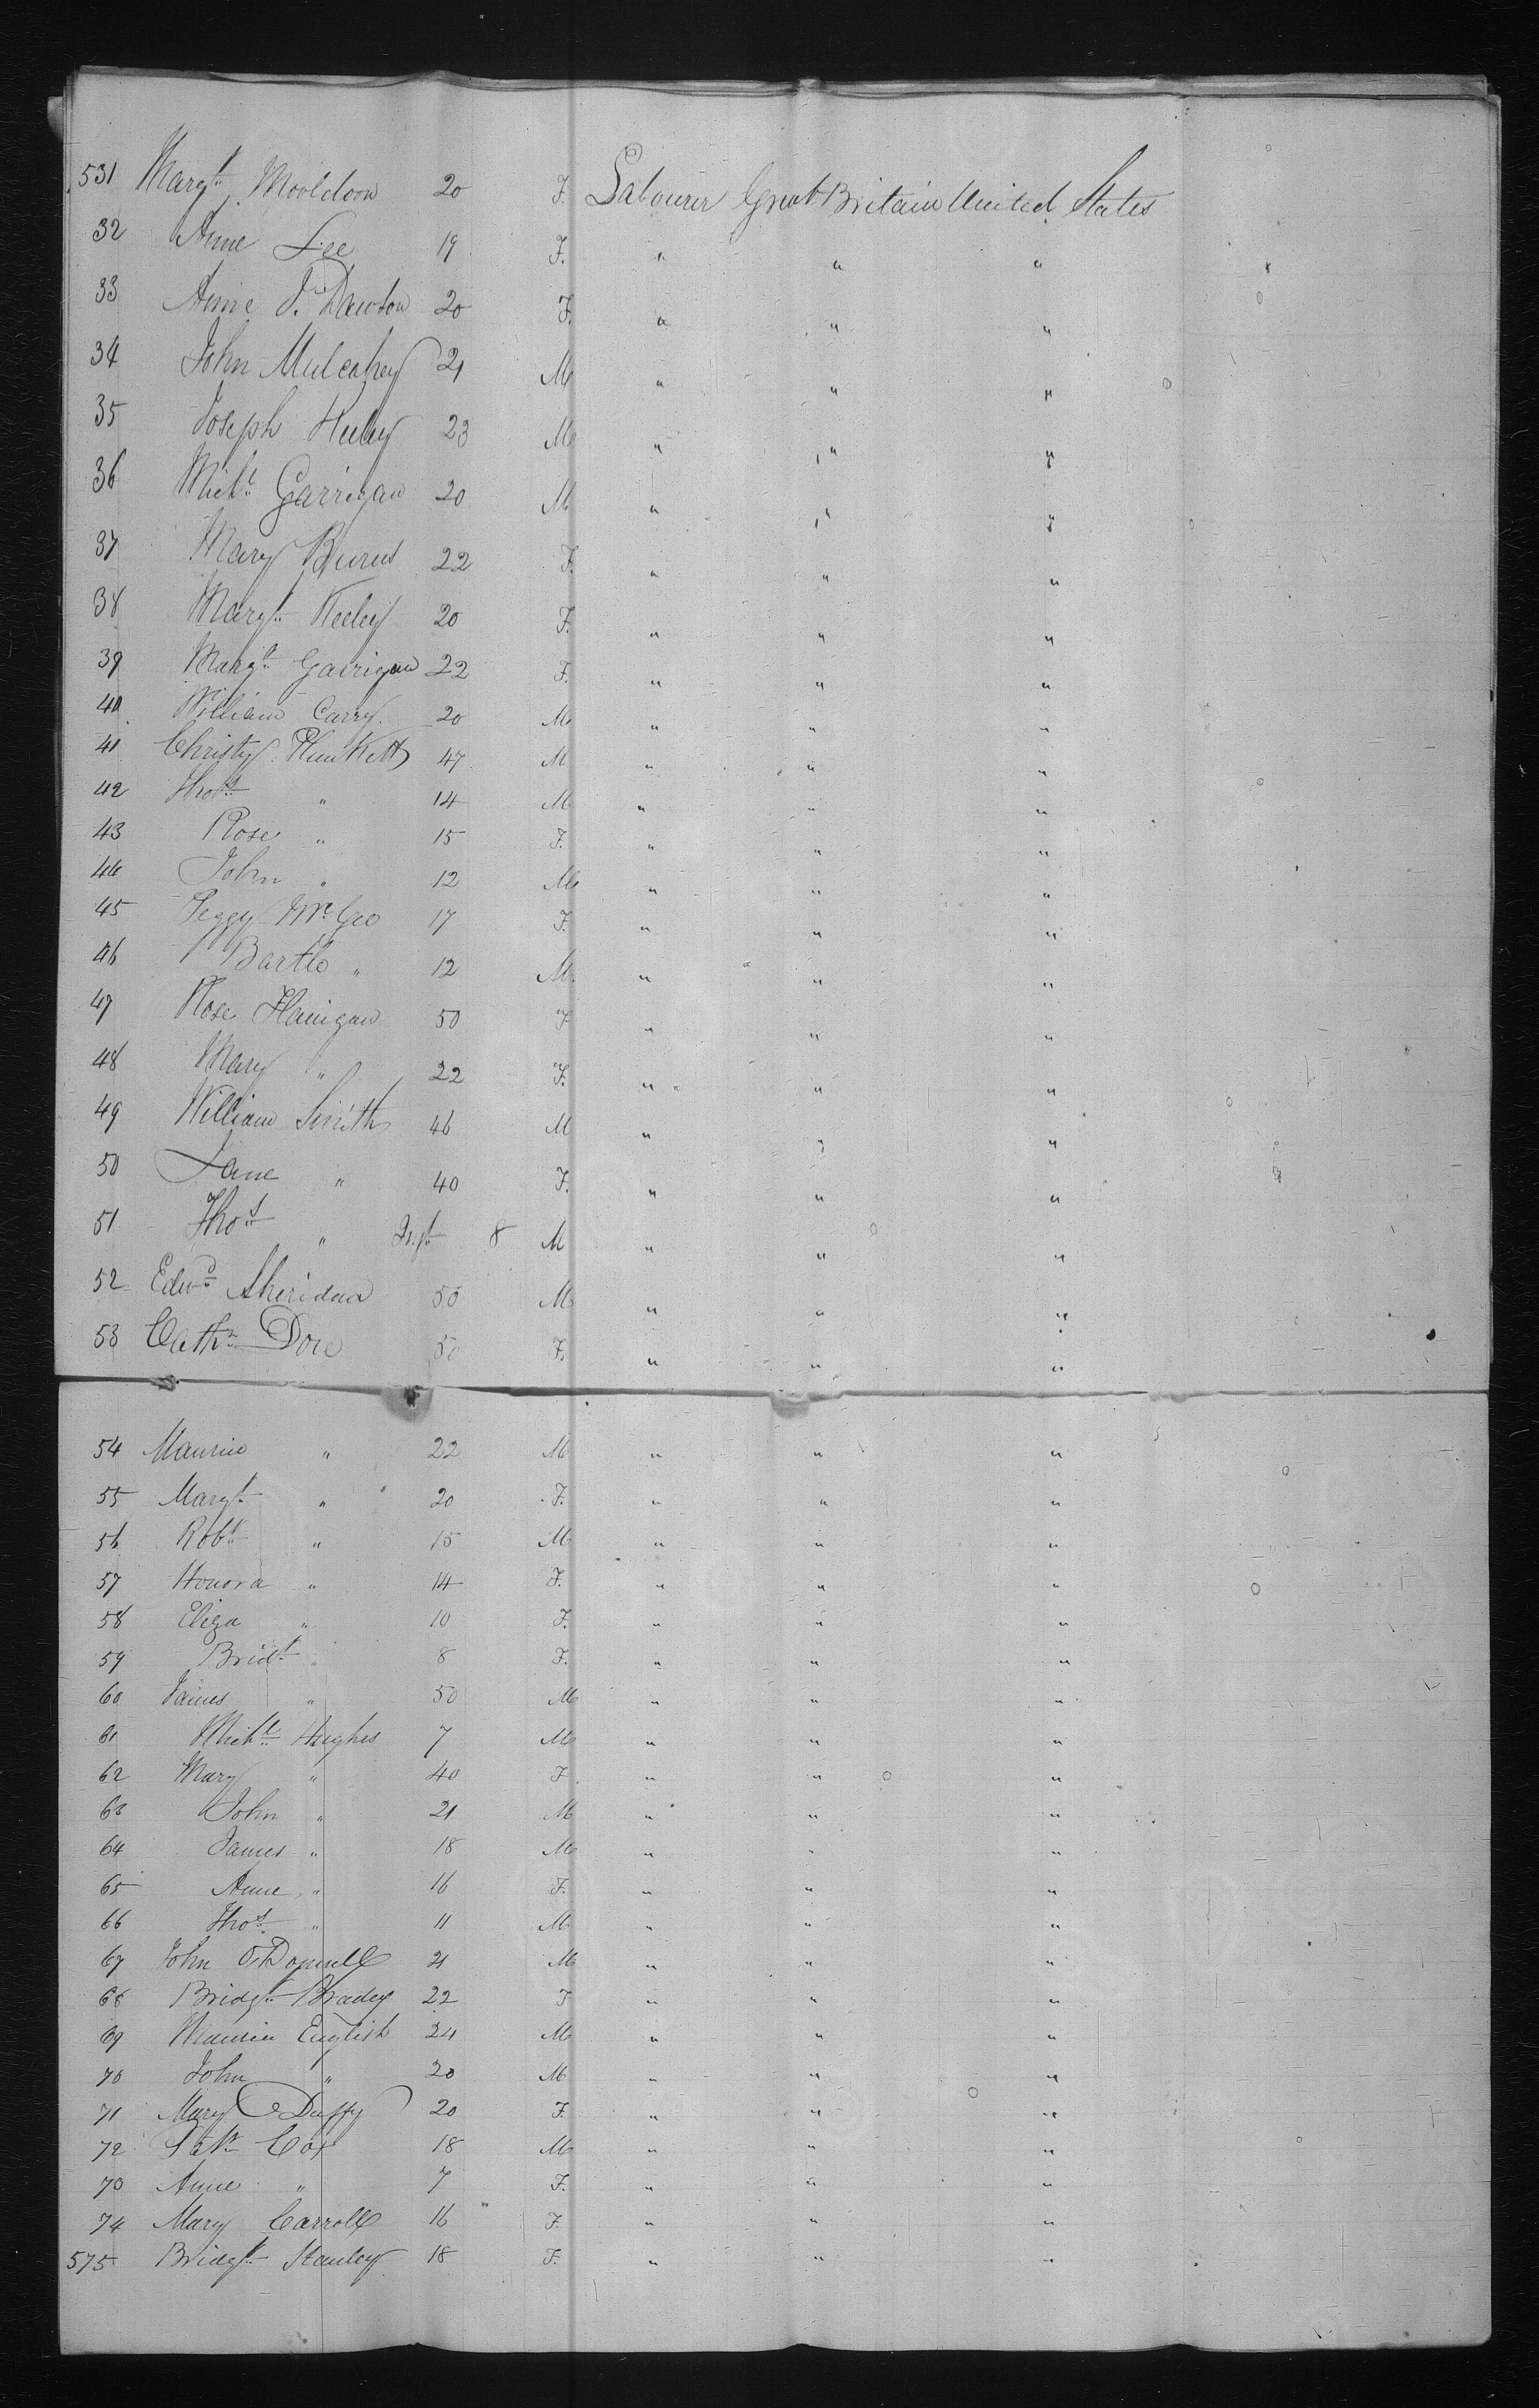 531 Margt. Mooldoon 20 F. Labourer Great Britain United States
32 Anne Lee 19 F. " " "
33 Anne J. Dawson 20 F. " " "
34 John Mulcahey 21 M " " "
35 Joseph Heeley 23 M " " "
36 Michl. Garrigan 20 M " " "
37 Mary Burns 22 F. " " "
38 Margt. Keeley 20 F. " " "
39 Margt. Garrigan 22 F. " " "
40 William Carry 20 M " " "
41 Christy Plunkett 47 M " " "
42 Thos. " 14 M " " "
43 Rose " 15 F. " " "
44 John " 12 M " " "
45 Peggy McGeo 17 F. " " "
46 Bartle " 12 M. " " "
47 Rose Flanigan 50 F " " "
48 Mary " 22 F. " " "
49 William Smith 46 M " " "
50 Jane " 40 F. " " "
51 Thos. " Inft. 8 M " " "
52 Edwd. Sheridan 50 M " " "
53 Cathn. Dore 50 F. " " "
54 Maurice " 22 M " " "
55 Margt. " 20 F. " " "
56 Robt. " 15 M " " "
57 Honora " 14 F. " " "
58 Eliza " 10 F. " " "
59 Bridt. " 8 F. " " "
60 James " 50 M " " "
61 Michl. Hughes 7 M " " "
62 Mary " 40 F " " "
63 John " 21 M " " "
64 James " 18 M " " "
65 Anne " 16 F. " " "
66 Thos. " 11 M " " "
67 John O'Donnell 21 M " " "
68 Bridgt. Brady 22 F " " "
69 Maurice English 24 M " " "
70 John " 20 M " " "
71 Mary Duffy 20 F. " " "
72 Patk. Cox 18 M " " "
73 Anne " 7 F. " " "
74 Mary Carroll 16 F. " " "
575 Bridgt. Stanley 18 F. " " "